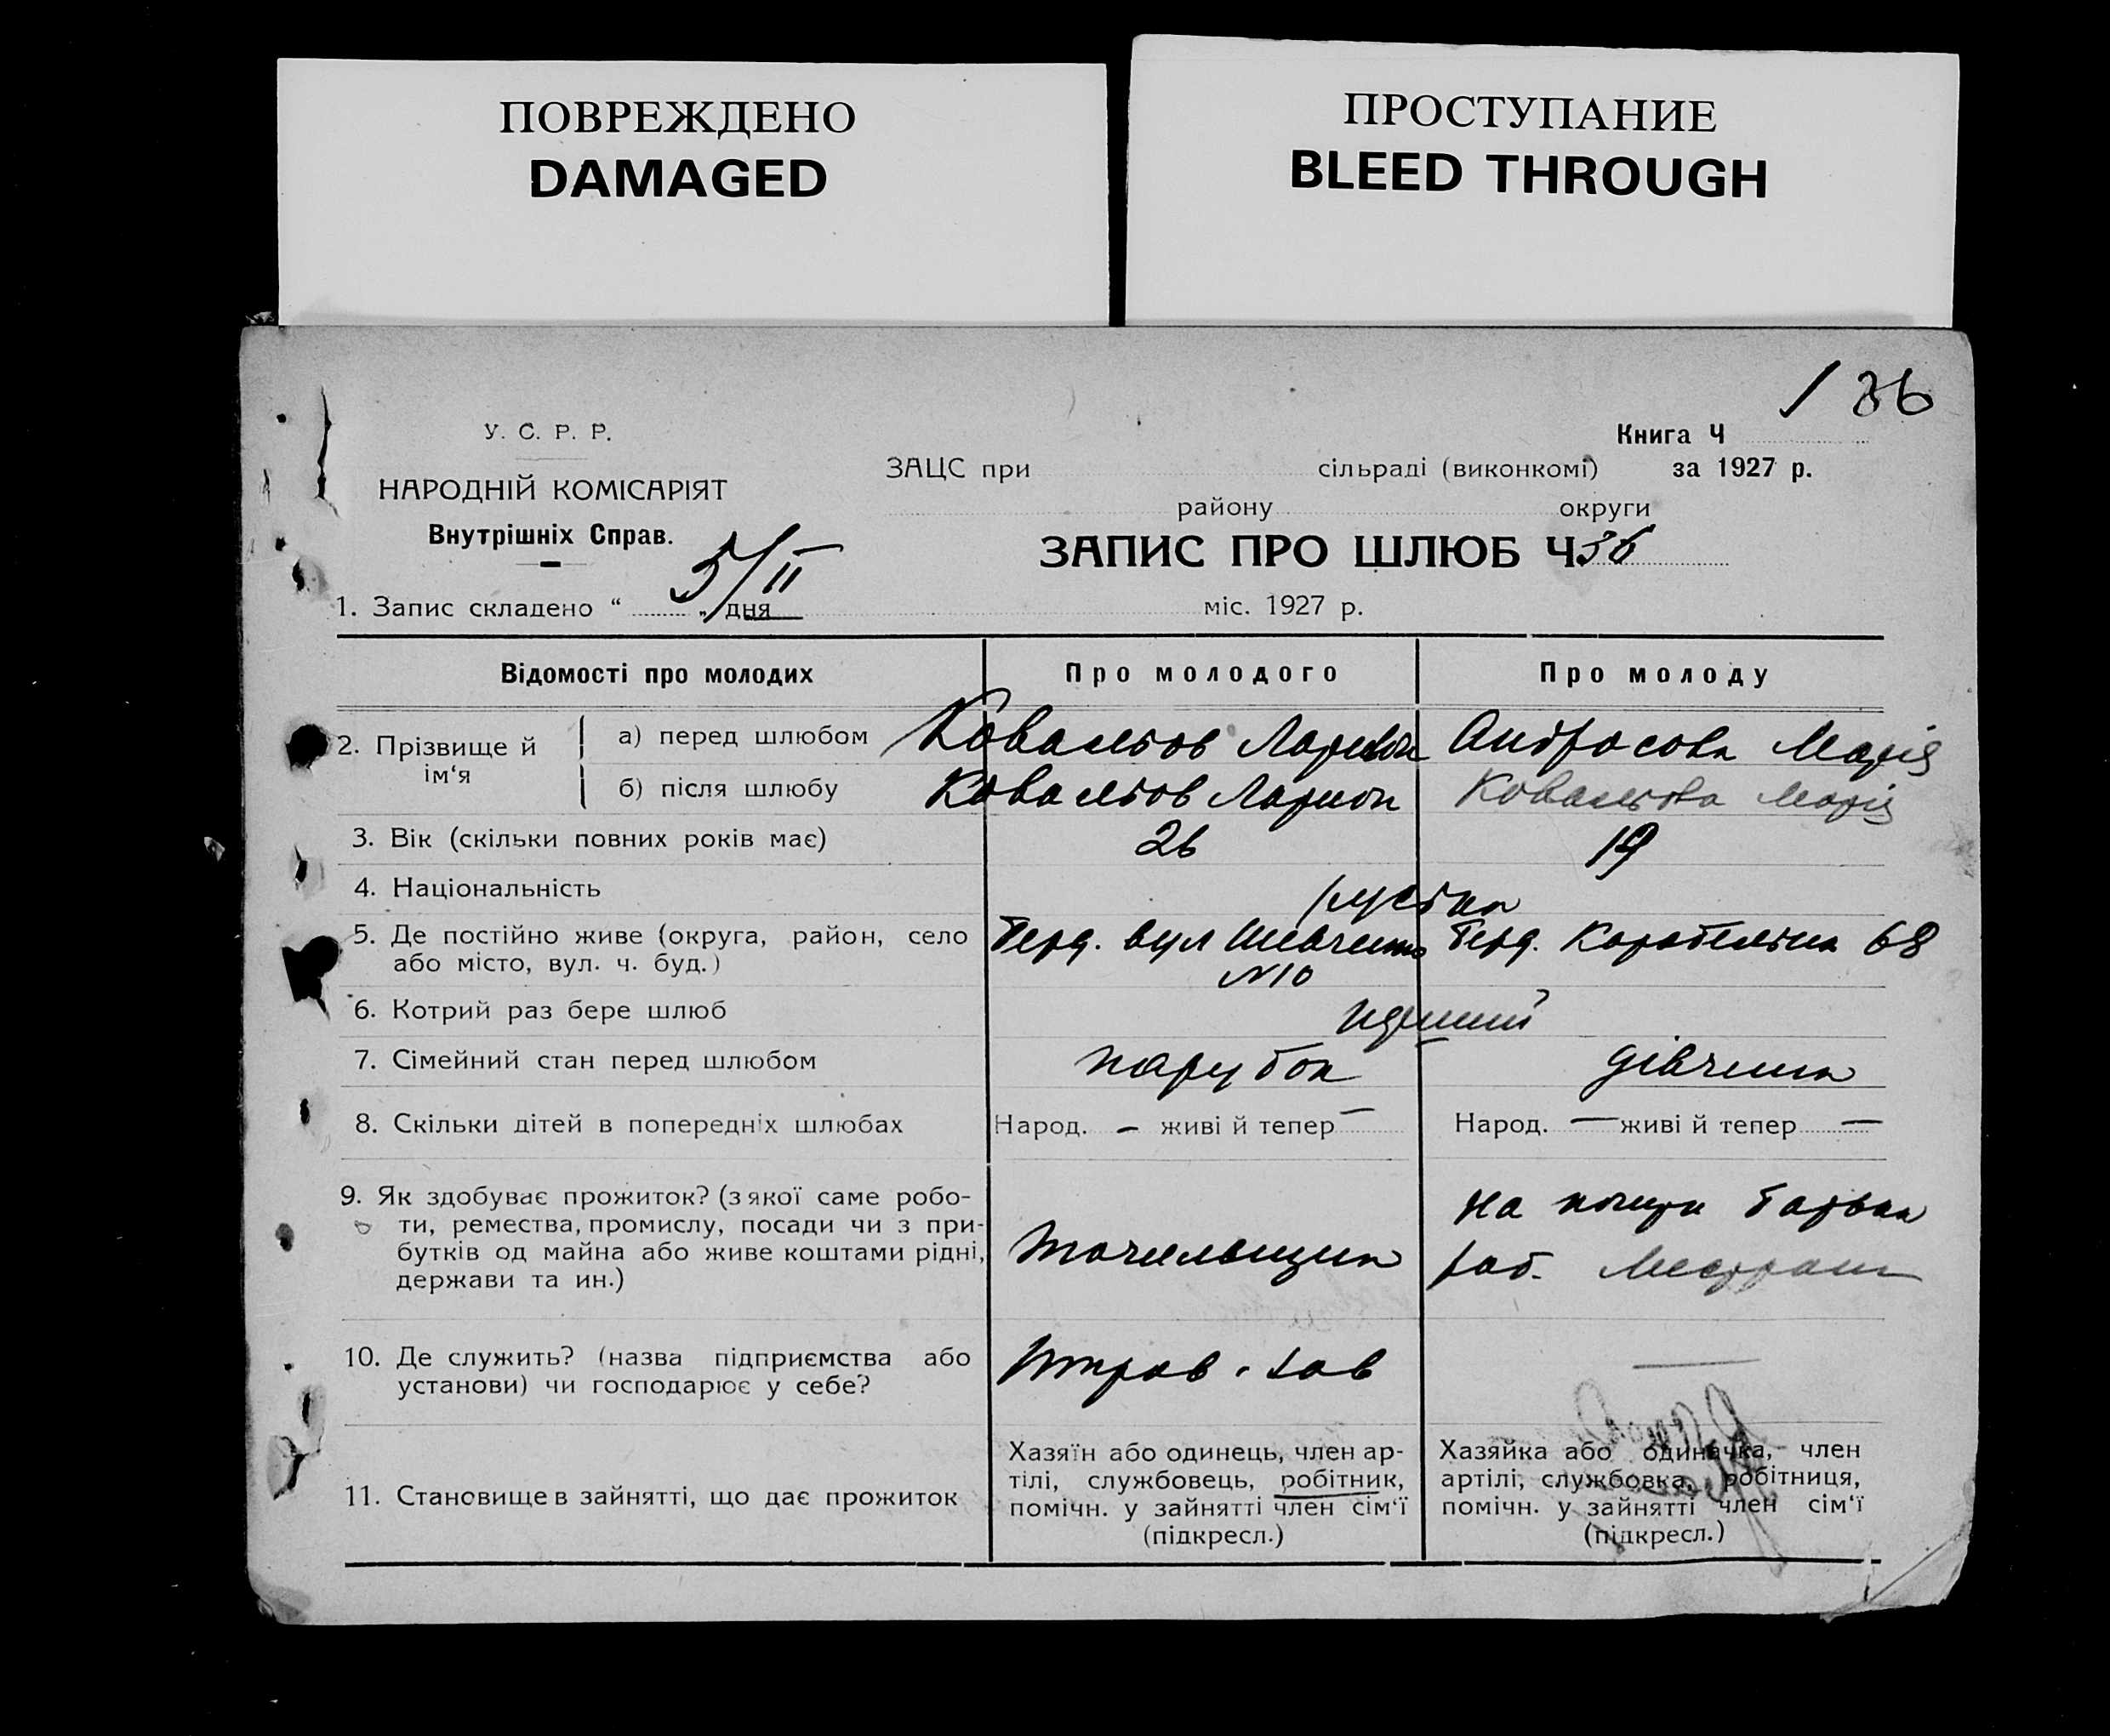 ПОВРЕЖДЕНО
DAMAGED
ПРОСТУПАНИЕ
BLEED THROUGH
/ 36
У. С. Р. Р.
НАРОДНІЙ КОМІСАРІЯТ
Внутрішніх Справ.
Книга Ч
ЗАЦС при сільраді (виконкомі) за 1927 р.
району округи
ЗАПИС ПРО ШЛЮБ Ч. 36
1. Запис складено “ 5/II „ дня міс. 1927 р.
Відомості про молодих Про молодого Про молоду
2. Прізвище й ім‘я
а) перед шлюбом Ковальов Ларион Андросова Марія
б) після шлюбу Ковальов Ларион Ковальова Марія
3. Вік (скільки повних років має) 26 19
4. Національність
5. Де постійно живе (округа, район, село Берд. вул Шевченко Берд. Корабельна 68
або місто, вул. ч. буд.) №10
6. Котрий раз бере шлюб перший
7. Сімейний стан перед шлюбом парубок дівчина
8. Скільки дітей в попередніх шлюбах Народ. — живі й тепер — Народ. — живі й тепер —
9. Як здобуває прожиток? (з якої саме робо-
ти, ремества, промислу, посади чи з при-
бутків од майна або живе коштами рідні,
держави та ин.)
Точильщик
На кошти батька
роб.
10. Де служить? (назва підприємства або
установи) чи господарює у себе?
—
11. Становище в зайнятті, що дає прожиток
Хазяїн або одинець, член ар-
тілі, службовець, робітник,
помічн. у зайнятті член сім‘ї
(підкресл.)
Хазяйка або одиначка, член
артілі, службовка, робітниця,
помічн. у зайнятті член сім‘ї
(підкресл.)